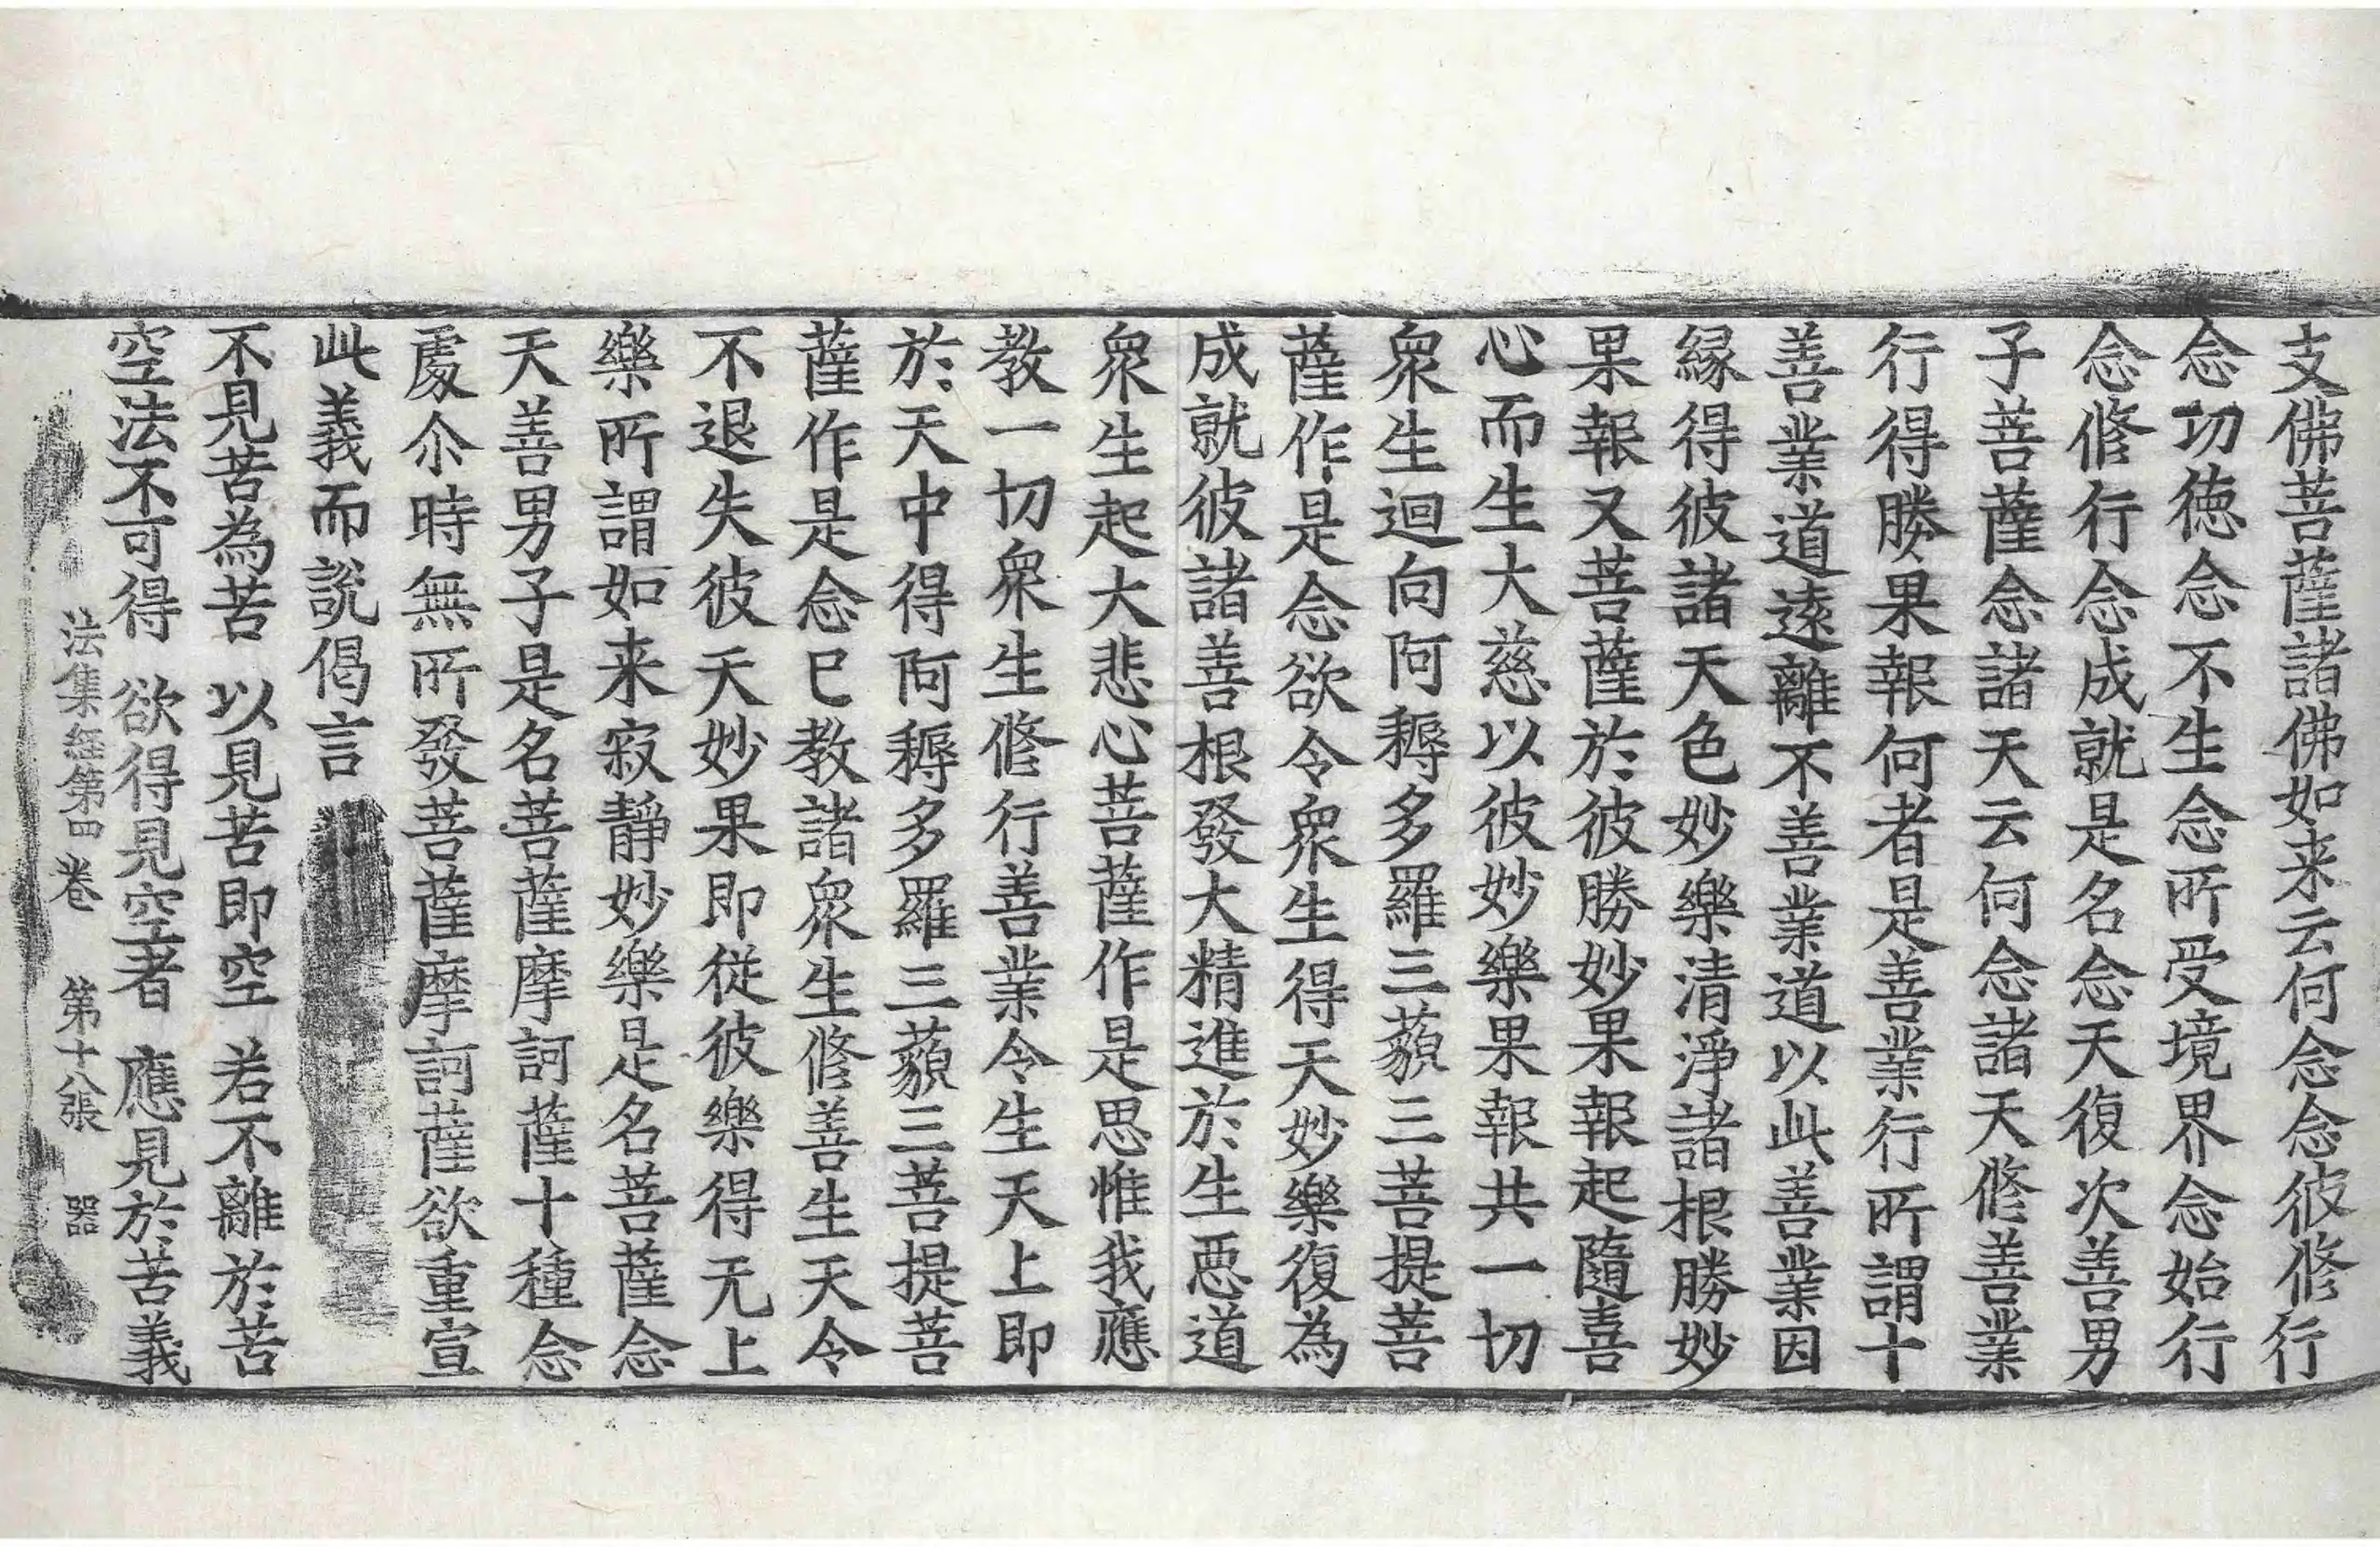 支佛菩薩諸佛如来云何念念彼修行
念切徳念不生念所受境界念始行
念修行念成就是名念天復次善男
子菩薩念諸天云何念諸天修善業
行得勝果報何者是善業行所謂十
善業道遠離不善業道以此善業因
緣得彼諸天色妙樂清淨諸根勝妙
果報又菩薩於彼勝妙果報起隨喜
心而生大慈以彼妙樂果報共一切
衆生迴向阿耨多羅三藐三菩提菩
薩作是念欲令衆生得天妙樂復為
成就彼諸善根發大精進於生惡道
衆生起大悲心菩薩作是思惟我應
教一切衆生修行善業令生天上即
於天中得阿耨多羅三藐三菩提菩
薩作是念已教諸衆生修善生天令
不退失彼天妙果即從彼樂得无上
樂所謂如来寂靜妙樂是名菩薩念
天善男子是名菩薩摩訶薩十種念
處尒時無所發菩薩摩訶薩欲重宣
此義而說偈言
不見苦為苦　以見苦即空　若不離於苦
空法不可得　欲得見空者　應見於苦義
法集經第四卷　第十八張　器